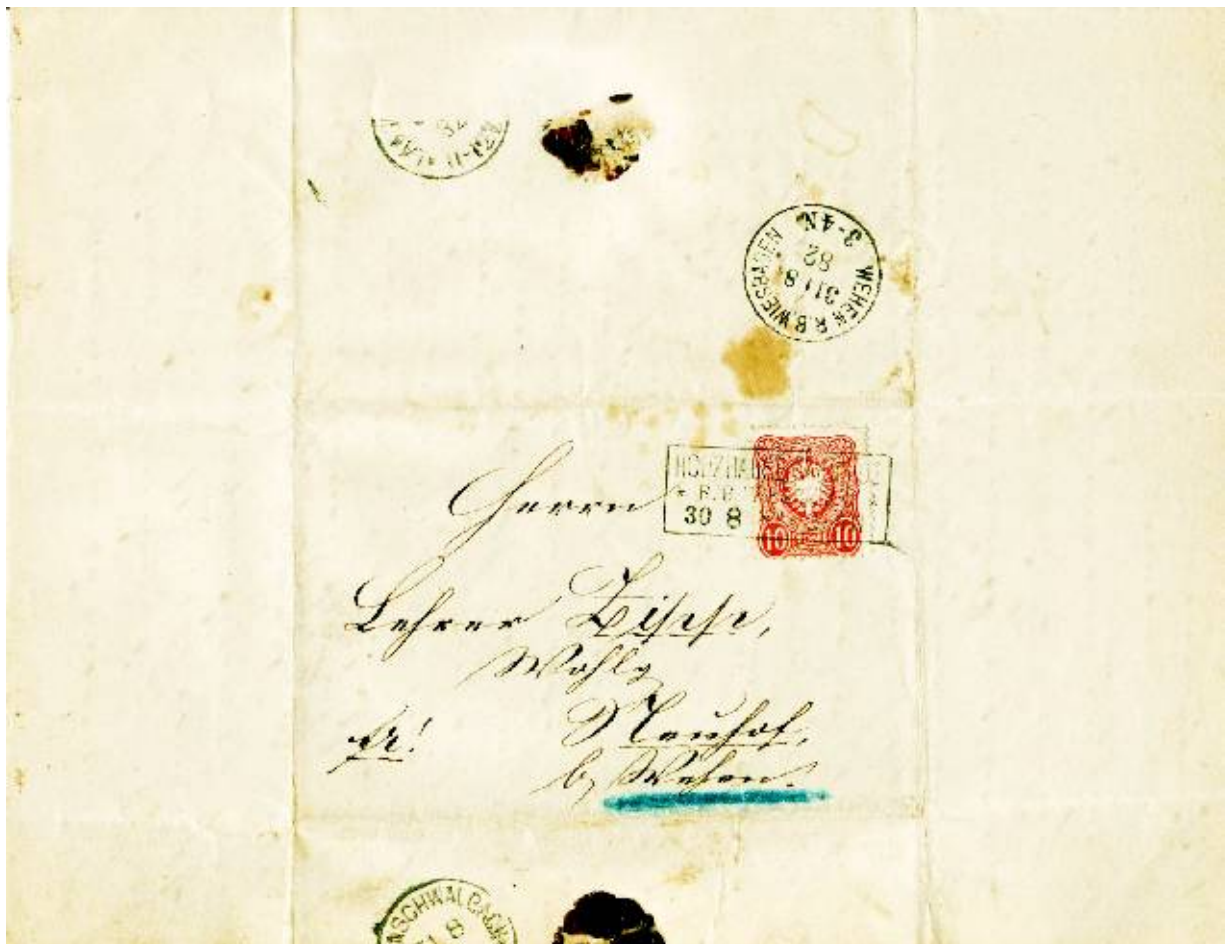 WEHEN R.B. WIESBADEN
31 8
82
3-4N
HOLZHAUSE
* R.B.
30 8
10 10
Herrn
Lehrer
Wohlg
Neuhof,
b/ Wehen.
fr!
NSCHWALBACH
8